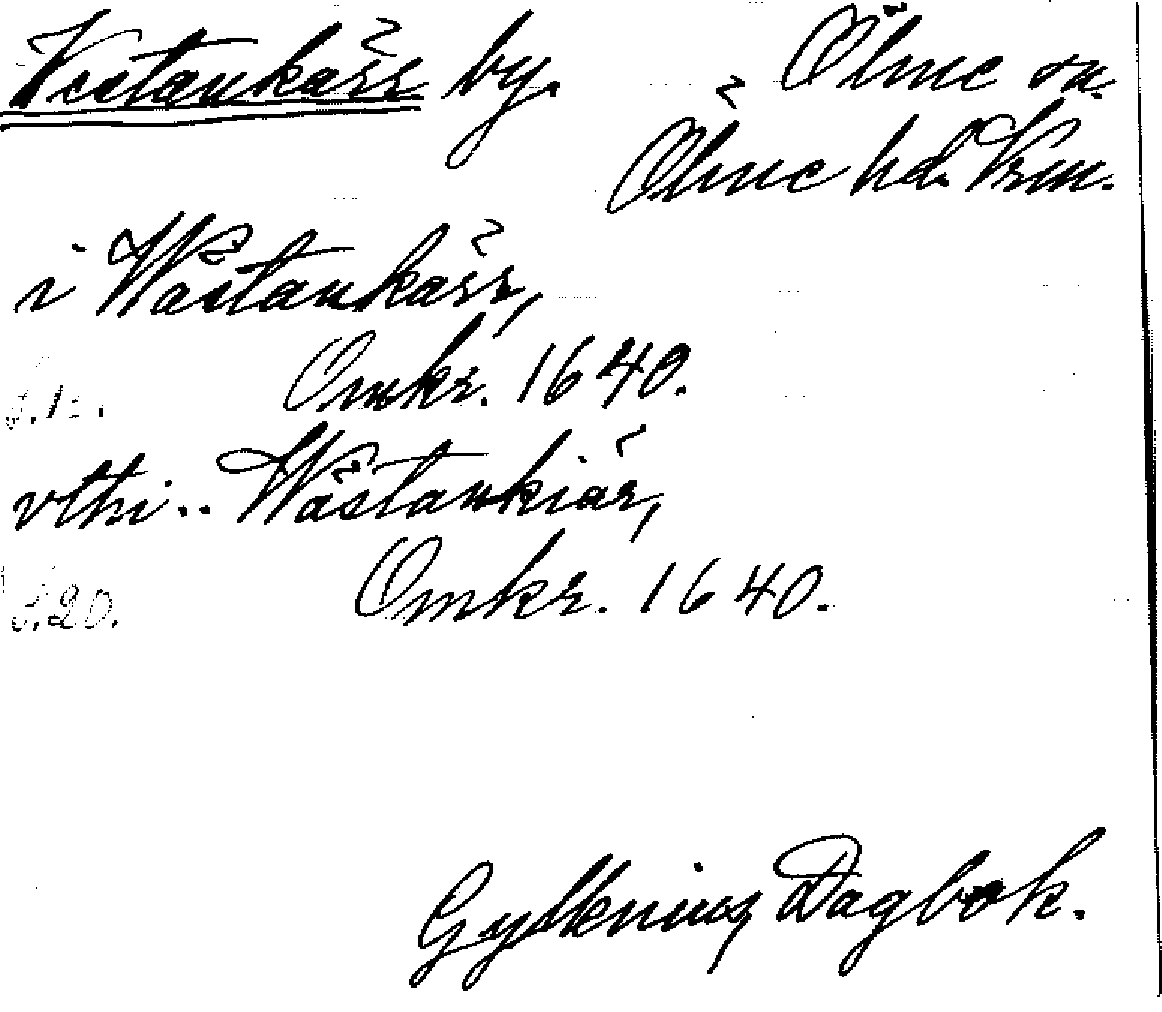 Vestankärr by. Ölme sn.
Ölme hd. Vrm.
i Wästankärr,
Omkr. 1640.
vthi.. Wästankiär,
Omkr. 1640.
s.20.
Gyllenius Dagbok.